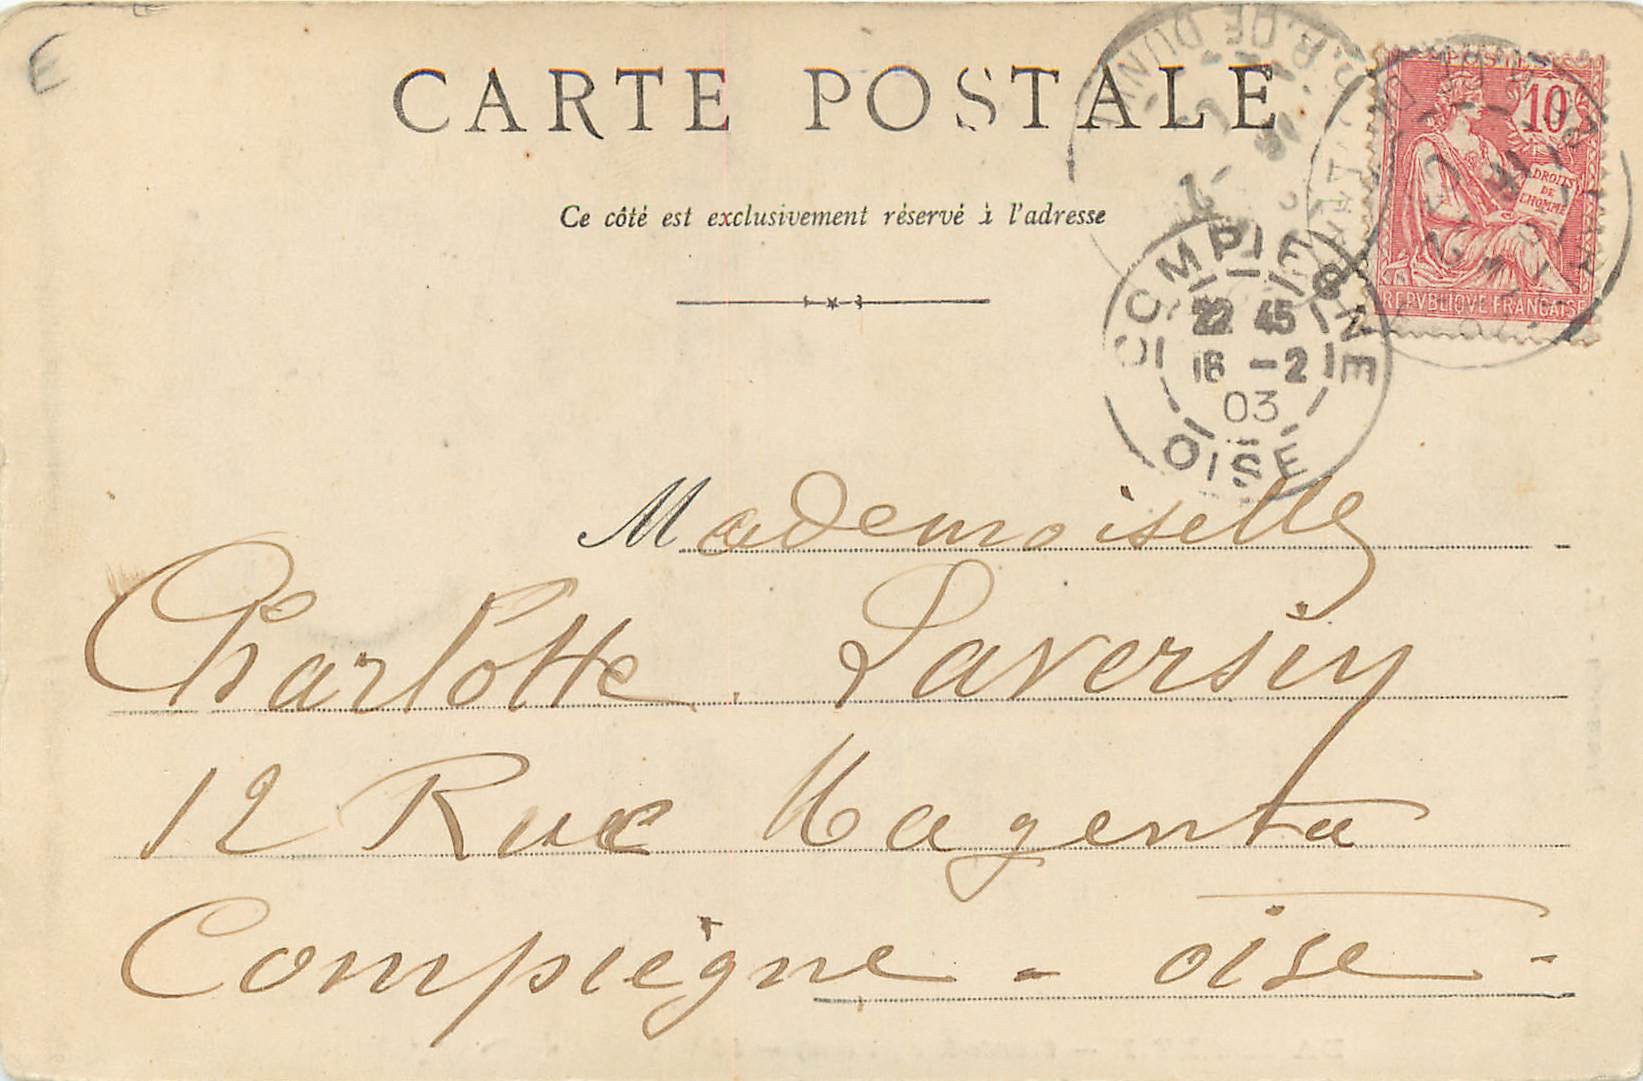 E
CARTE POSTALE
Ce côté est exclusivement réservé à l'adresse
POSTES
10
DROITS
DE
L'HOMME
REPVBLIQVE FRANCAISE
R. DE DUNK
COMPIEGNE
22 45
16 -2
03
OISE
Mademoiselle
Charlotte Laversin
12 Rue Magenta
Compiègne - oise -